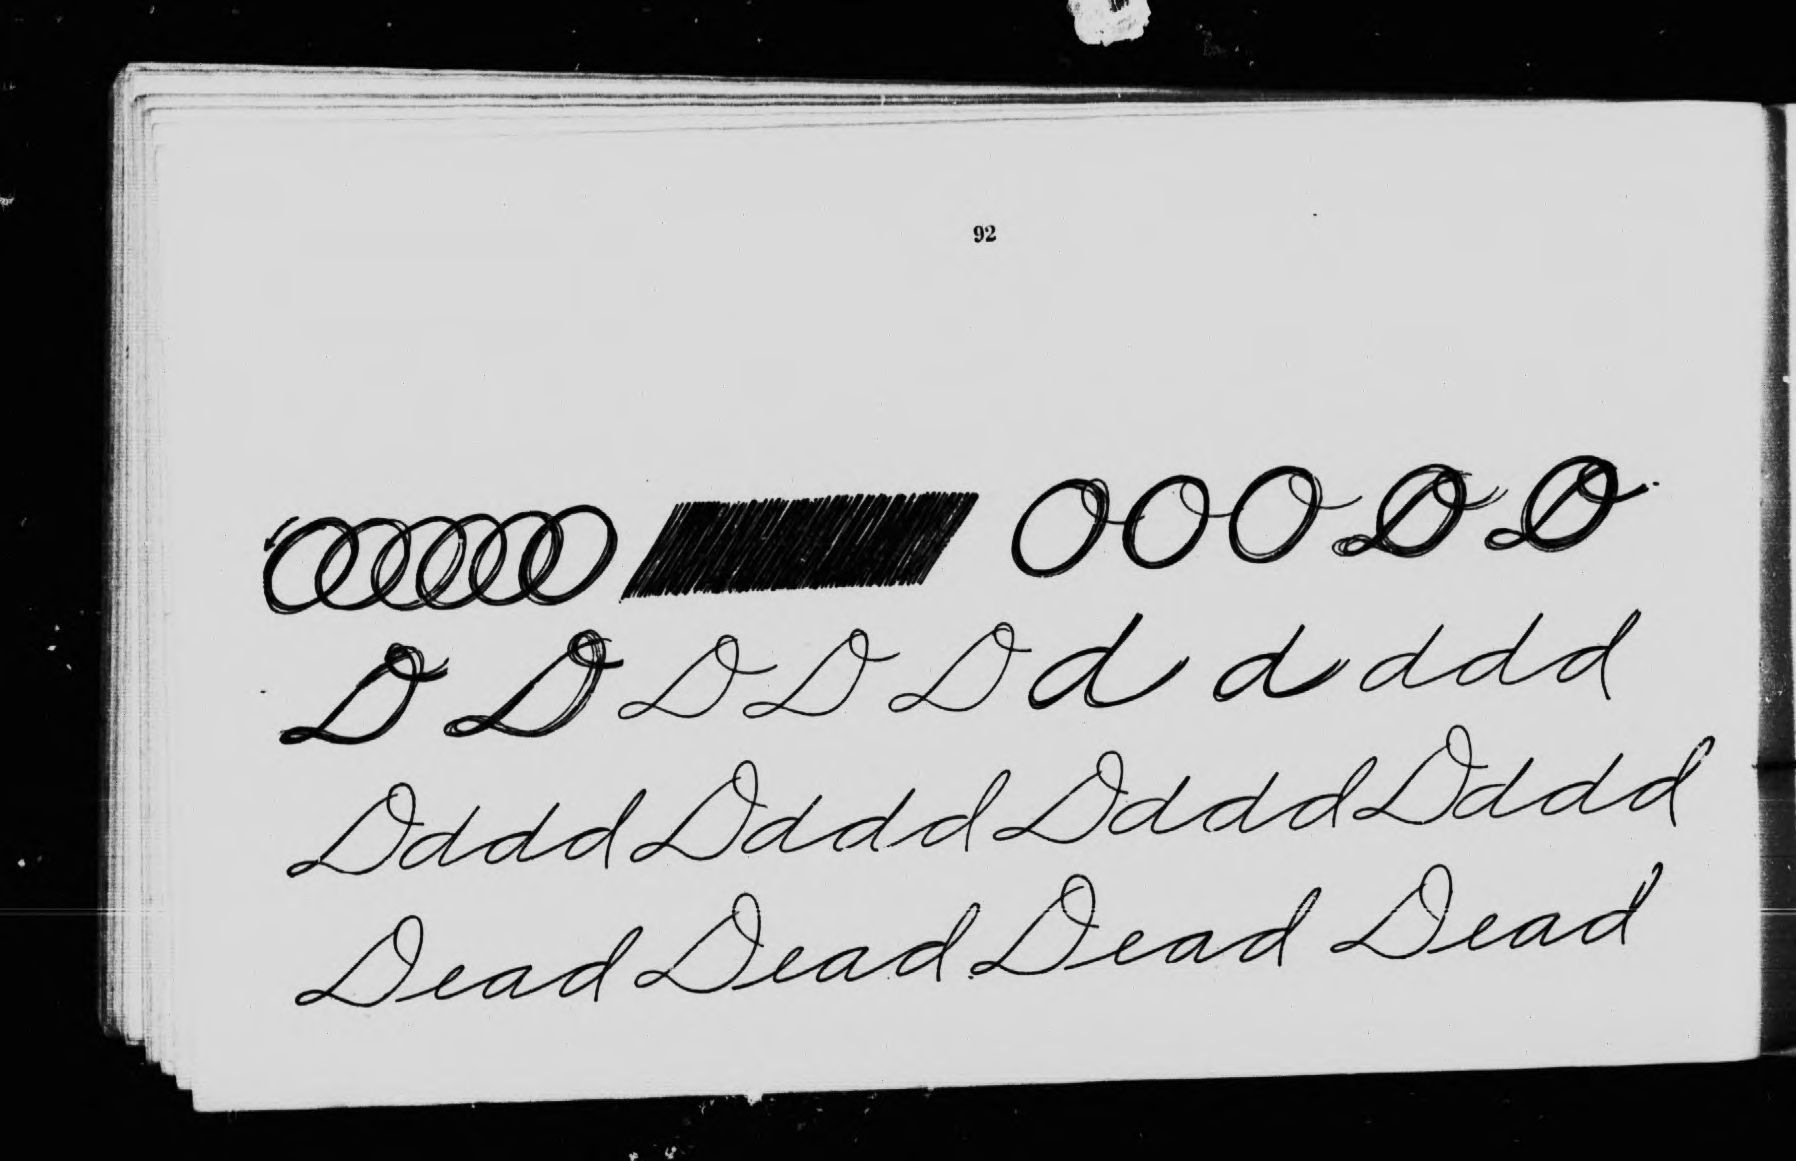 92
O O O D D
D D D D D d d d d d
Dddd Dddd Dddd Dddd
Dead Dead Dead Dead